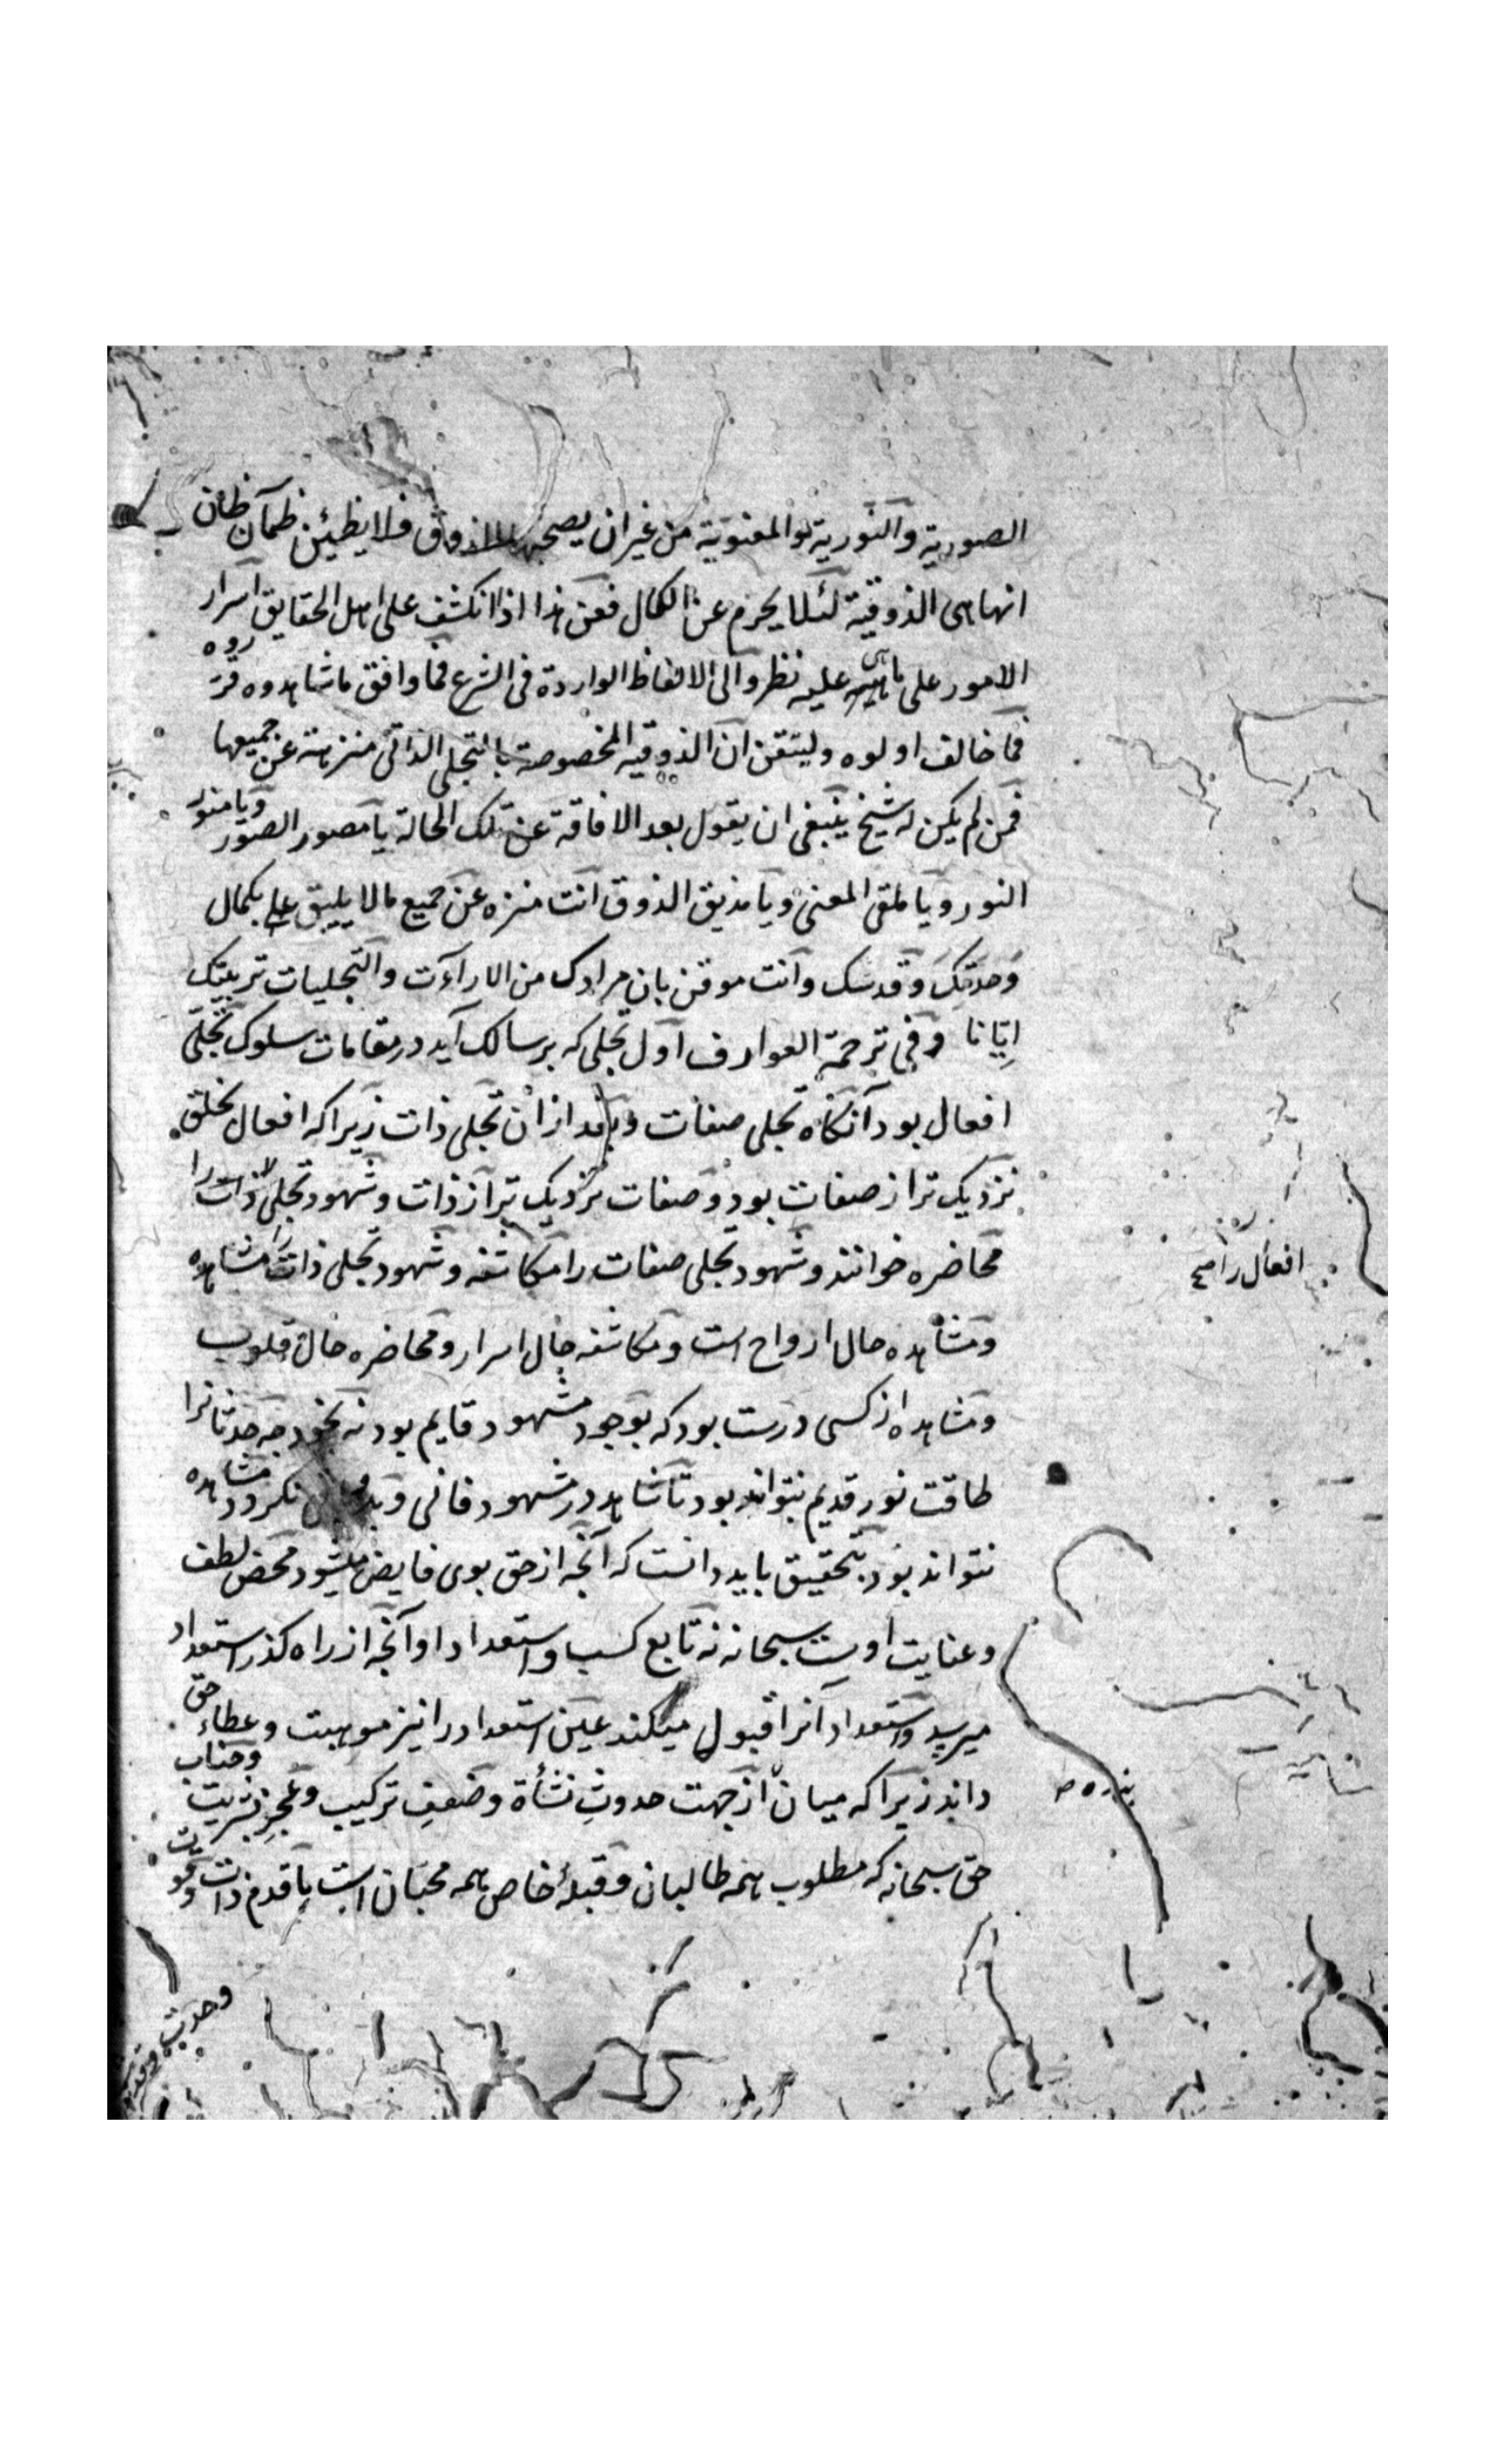 الصورية والنورية والمعنوية من غير ان يصحبها الذوق فلا يظن ظمآن ظان
انها هى الذوقية لئلا يحرم عن الكمال فعن هذا اذا انكشف على اهل الحقايق اسرار
الامور على ما هى عليه نظروا الى الالفاظ الواردة فى الشرع فما وافق ما شاهدوه قرروه
فما خالف اولوه وليتقن ان الذوقيه المخصوصة بالتجلى الذاتى منزهة عن جميعها
فمن لم يكن له شيخ ينبغى ان يقول بعد الافاقة عن تلك الحالة يا مصور الصور ويا منور
النور ويا ملقى المعنى ويا مذيق الذوق انت منزه عن جميع ما لا يليق بكمال
وحدتك وقدسك وانت موقن بان مرادك من الاراآت والتجليات تربيتك
ايانا وفى ترجمة العوارف اول تجلى كه بر سالك آيد در مقامات سلوك تجلى
افعال بود آنكاه تجلى صفات وبعد از ان تجلى ذات زيرا كه افعال بخلق
نزديك تر از صفات بود وصفات نزديك تر از ذات وشهود تجلى ذات را
افعال را صح
محاضره خوانند وشهود تجلى صفات را مكاشفه وشهود تجلى ذات را مشاهده
ومشاهده حال ارواح است ومكاشفه حال اسرار ومحاضره حال قلوب
ومشاهده از كسى درست بود كه بوجود مشهود قايم بود نه بخود چه حدثانرا
طاقت نور قديم نتواند بود تا شاهد در مشهود فانى وبدو نكردد مشاهده
نتواند بود بتحقيق بايد دانست كه آنچه از حق بوى فايض ميشود محض لطف
وعنايت اوست سبحانه نه تابع كسب واستعداد او آنچه از راه كذر استعداد
ميرسد واستعداد آنرا قبول ميكند عين استعداد را نيز موهبت وعطاء حق
داند زيرا كه ميان از جهت حدوث نشأة وضعف تركيب وعجز بشريت وجناب
بنده ص
حق سبحانه كه مطلوب همه طالبان وقبلهٔ خاص همه محبان است با قدم ذات
وحدت